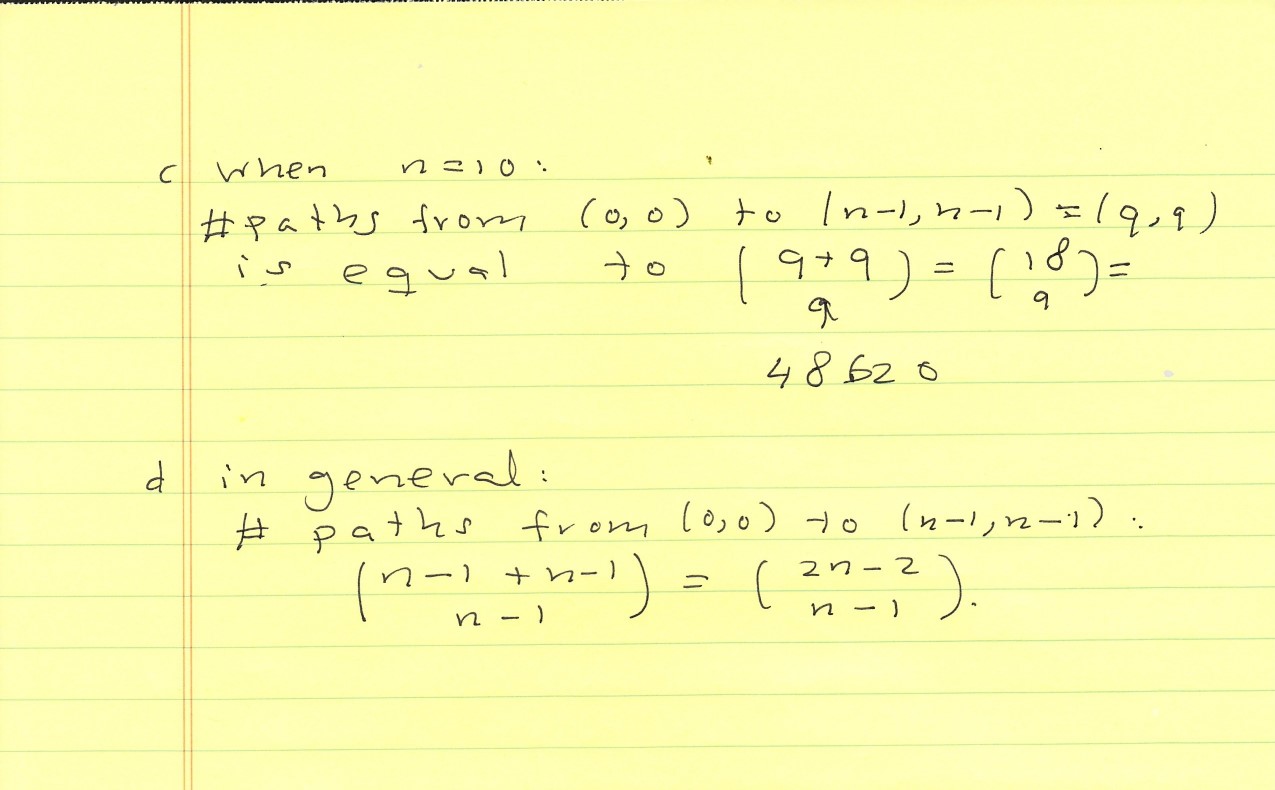 c when n=10:
#paths from (0,0) to (n-1,n-1) = (9,9)
is equal to (9+9 9) = (18 9) =
48620
d in general:
# paths from (0,0) to (n-1,n-1):
(n-1+n-1 n-1) = (2n-2 n-1).